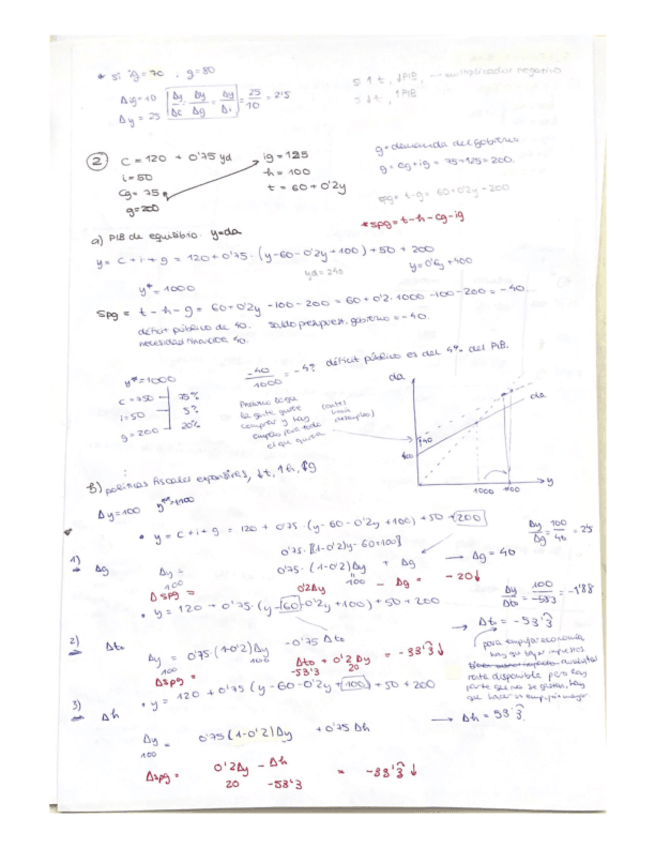 * si ig=70 ; g=80
Δig=10 Δy/Δc = Δy/Δg = Δy/Δi = 25/10 = 2'5
Δy = 25
si ↑t, ↓PIB, → multiplicador negativo
si ↓t, ↑PIB
2 C = 120 + 0'75 yd
i=50
Cg= 75
g=200
ig=125
h=100
t = 60+0'2y
g=demanda del gobierno
g= cg+ig = 75+125=200.
spg= t-g= 60+0'2y-200
*spg=t-h-cg-ig
a) PIB de equilibrio. y=da
y = c+i+g = 120+0'75·(y-60-0'2y+100)+50+200
y=0'6y+400
y*=1000
Spg = t-h-g = 60+0'2y-100-200 = 60+0'2·1000-100-200=-40
déficit público de 40. Saldo presupuest. gobierno=-40.
necesidad financiación 40.
y*=1000
C=750 — 75%
i=50 — 5%
g=200 — 20%
-40/1000 = -4% déficit público es del 4% del PIB.
la gente quiere
comprar y hay
empleo para todo
el que quiera
da
da
400
1000
y
b) políticas fiscales expansivas, ↓t, ↑h, ↑g
Δy=100 y*=1100
• y=c+i+g = 120+0'75·(y-60-0'2y+100)+50+200
0'75·[(1-0'2)y-60+100]
1) Δg Δy = 0'75·(1-0'2)Δy + Δg → Δg=40
100 100
Δspg = 0'2Δy - Δg = -20↓
Δy/Δg = 100/40 = 2'5
• y=120+0'75·(y-60-0'2y+100)+50+200
Δy/Δto = 100/-53'3 = -1'88
→ Δto = -53'3
2) Δto Δy = 0'75·(1-0'2)Δy -0'75 Δto
100 100
Δspg = Δto + 0'2 Δy = -33'3↓
-53'3 20
para empujar economía
hay que bajar impuestos
renta disponible pero hay
parte que no se gastan, hay
que hacer un empuje mayor.
3) Δh • y = 120+0'75 (y-60-0'2y+100)+50+200
Δy = 0'75(1-0'2)Δy +0'75Δh → Δh=53'3
100
Δspg = 0'2Δy - Δh = -33'3↓
20 -53'3